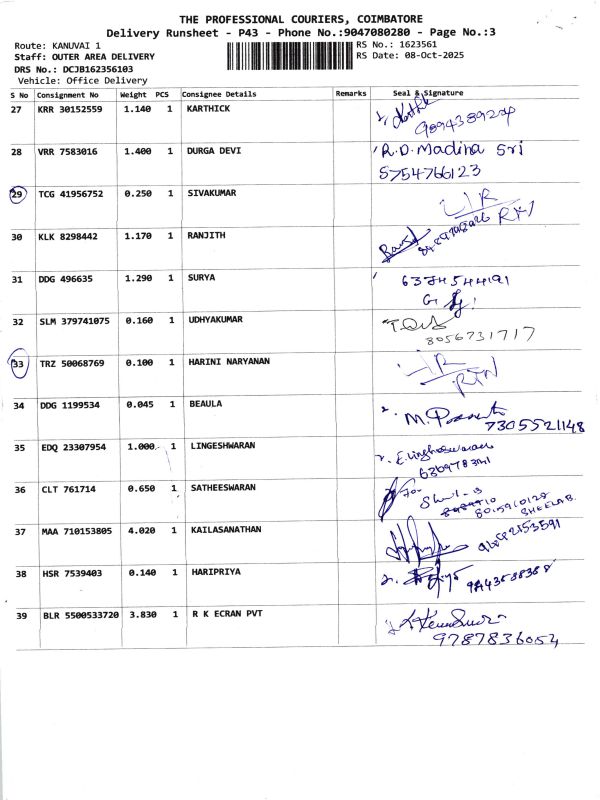 THE PROFESSIONAL COURIERS, COIMBATORE
Delivery Runsheet - P43 - Phone No.:9047080280 - Page No.:3
Route: KANUVAI 1
RS No.: 1623561
Staff: OUTER AREA DELIVERY
RS Date: 08-Oct-2025
DRS No.: DCJB162356103
Vehicle: Office Delivery
S No Consignment No Weight PCS Consignee Details Remarks Seal & Signature
27 KRR 30152559 1.140 1 KARTHICK
28 VRR 7583016 1.400 1 DURGA DEVI R.D. Madina Sri
5754766123
29 TCG 41956752 0.250 1 SIVAKUMAR
30 KLK 8298442 1.170 1 RANJITH
31 DDG 496635 1.290 1 SURYA 6384544191
32 SLM 379741075 0.160 1 UDHYAKUMAR
8056731717
33 TRZ 50068769 0.100 1 HARINI NARYANAN
RTN
34 DDG 1199534 0.045 1 BEAULA
7305521148
35 EDQ 23307954 1.000 1 LINGESHWARAN
36 CLT 761714 0.650 1 SATHEESWARAN For
SHEELA B.
37 MAA 710153805 4.020 1 KAILASANATHAN
38 HSR 7539403 0.140 1 HARIPRIYA
39 BLR 5500533720 3.830 1 R K ECRAN PVT
9787836054